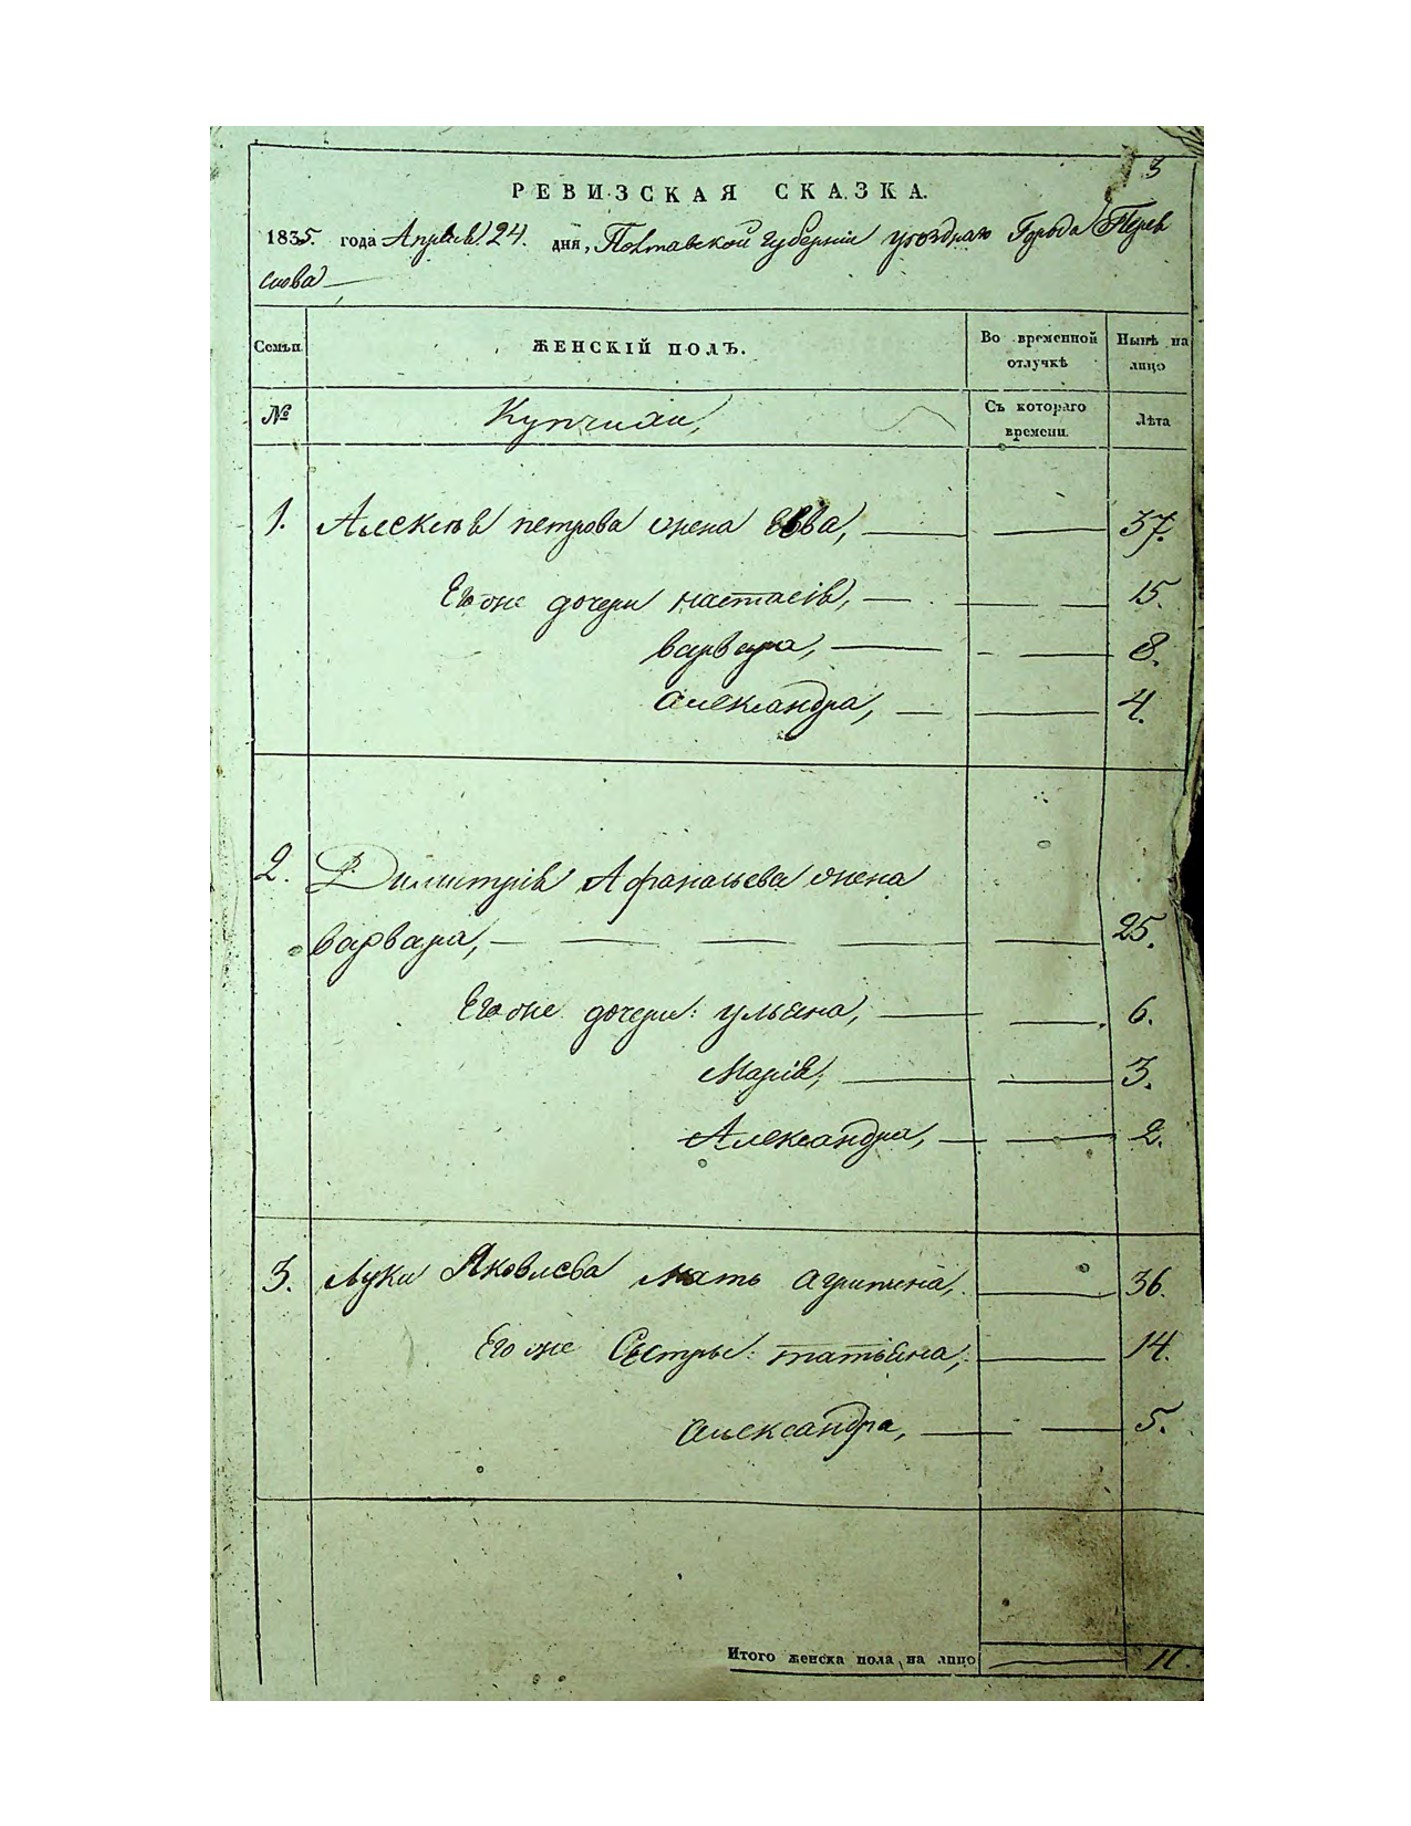 3
РЕВИЗСКАЯ СКАЗКА.
1835. года Апреля 24. дня, Полтавской губернии Города Перея
слова
Семьи. ЖЕНСКІЙ ПОЛЪ. Во временной отлучкѣ Нынѣ на лицо
№ Съ котораго времени. Лѣта
1. Алексѣя петрова жена Евва, 37.
Его же дочери настасія, 15.
варвара, 8.
александра, 4.
2. Димитрія Афанасьева жена
варвара, 25.
Его же дочери: ульяна, 6.
Марія, 3.
Александра, 2.
3. Луки Яковлева мать агрипина, 36.
Его же Сестры: татьяна, 14.
александра, 5.
Итого женска пола на лицо 11.